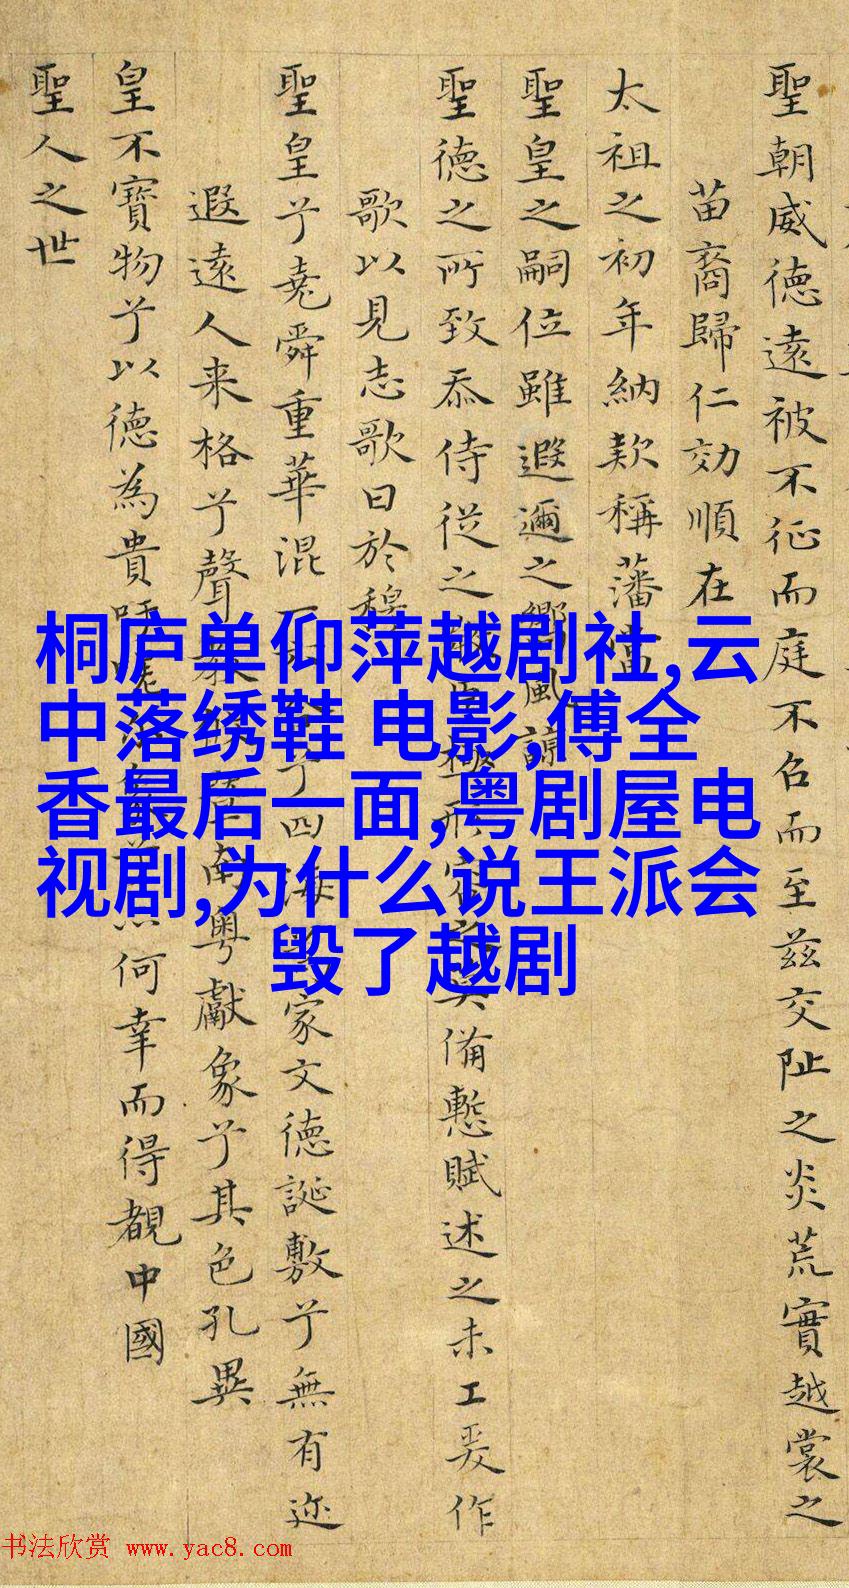 聖朝威徳遠被不征而庭不召而至茲交阯之炎荒實越裳之
苗裔歸仁効順在
太祖之初年納款稱藩當
聖皇之嗣位雖遐邇之嚮風諒
聖徳之所致忝侍從之極形容矣備慙賦述之未工爰作
歌以見志歌曰於穆
聖皇兮堯舜重華混一兮四海家文徳誕敷兮無有迩
遐遠人来格兮聲南粤獻象兮其色孔異
皇不寶物兮以徳為貴吁何幸而得覩中國
聖人之世
桐庐单仰萍越剧社,云
中落绣鞋 电影,傅全
香最后一面,粤剧屋电
视剧,为什么说王派会
毁了越剧
书法欣赏 www.yac8.com